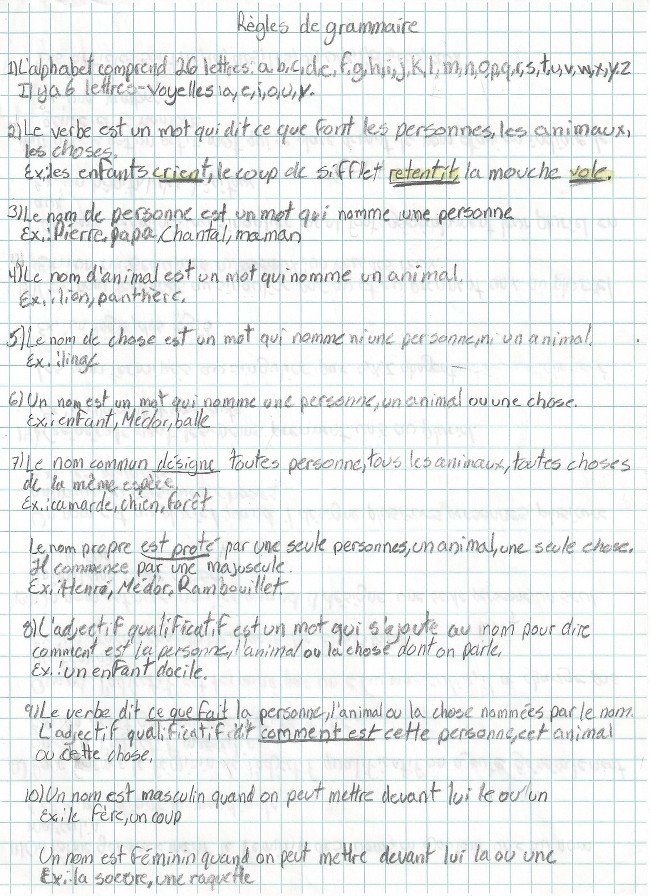 Règles de grammaire
1) L'alphabet comprend 26 lettres: a,b,c,d,e,f,g,h,i,j,k,l,m,n,o,p,q,r,s,t,u,v,w,x,y,z
Il y a 6 lettres-voyelles: a,e,i,o,u,y.
2) Le verbe est un mot qui dit ce que font les personnes, les animaux,
les choses.
Ex: les enfants crient, le coup de sifflet retentit, la mouche vole.
3) Le nom de personne est un mot qui nomme une personne
Ex.: Pierre, papa, Chantal, maman
4) Le nom d'animal est un mot qui nomme un animal.
Ex.: lion, panthère.
5) Le nom de chose est un mot qui nomme ni une personne, ni un animal.
Ex.: linge
6) Un nom est un mot qui nomme une personne, un animal ou une chose.
Ex: enfant, Médor, balle
7) Le nom commun désigne toutes personne, tous les animaux, toutes choses
de la même espèce.
Ex.: camarde, chien, forêt
Le nom propre est proté par une seule personnes, un animal, une seule chose.
Il commence par une majuscule.
Ex.: Henré, Médor, Rambouillet.
8) L'adjectif qualificatif est un mot qui s'ajoute au nom pour dire
comment est la personne, l'animal ou la chose dont on parle.
Ex.: un enfant docile.
9) Le verbe dit ce que fait la personne, l'animal ou la chose nommées par le nom.
L'adjectif qualificatif dit comment est cette personne, cet animal
ou cette chose.
10) Un nom est masculin quand on peut mettre devant lui le ou un
Ex: le Père, un coup
Un nom est féminin quand on peut mettre devant lui la ou une
Ex.: la soeure, une raquette